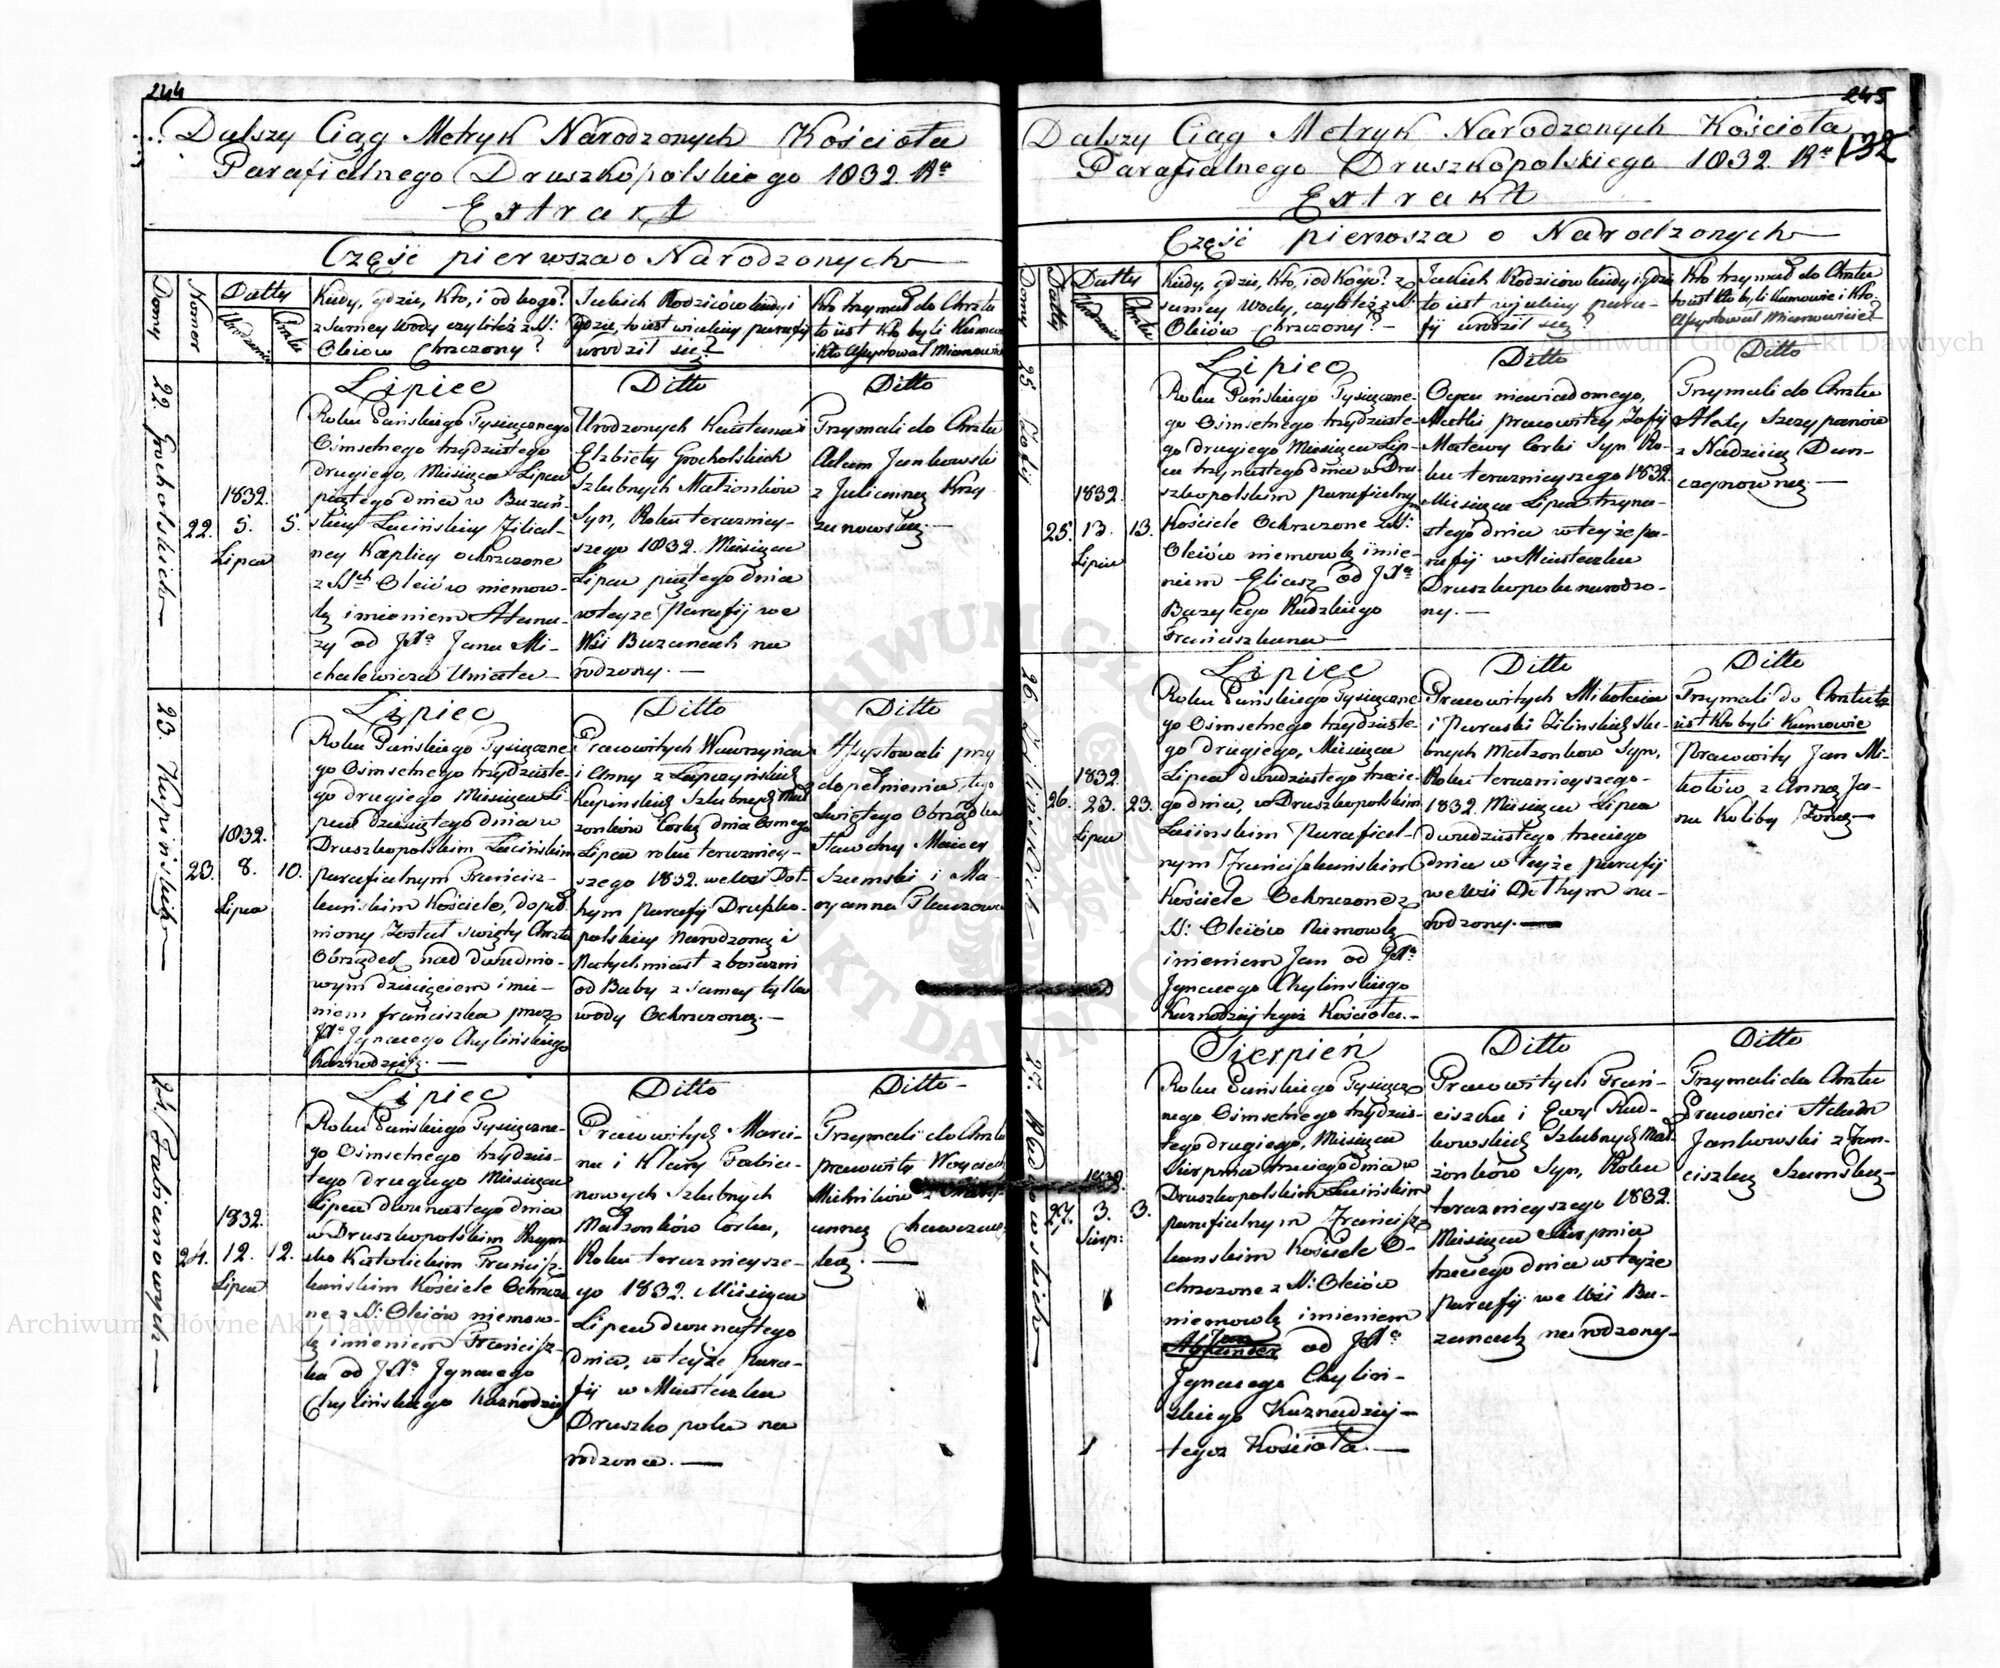 244
Dalszy Ciąg Metryk Narodzonych Kościoła
Parafialnego Druszkopolskiego 1832. Rº
Extrakt
Część pierwsza o Narodzonych
Domy
Numer
Datty
Urodzenia
Chrztu
Kiedy, gdzie, Kto, i od kogo?
z samey Wody czyli też z SS:
Oleiów Chrzczony?
Jakich Rodziców kiedy i
gdzie, to iest w iakiey parafij
urodził się?
Kto trzymał do Chrztu
to iest Kto byli Kumowie
i Kto Assystował Mianowicie
22. Grocholskich
22.
1832.
5.
Lipca
5.
Lipiec
Roku Pańskiego Tysiącznego
Ośmsetnego trzydziestego
drugiego, Miesiąca Lipca
piątego dnia w Buzań-
skiey Łacińskiey Filial-
ney Kaplicy ochrzczone
z SSch Oleiów niemow-
lę imieniem Atana-
zy od JXª Jana Mi-
chalewicza Uniata
Ditto
Urodzonych Kaietana i
Elżbiety Grocholskich
Szlubnych Małżonków
Syn, Roku terazniey-
szego 1832. Miesiąca
Lipca piątego dnia
w teyże Parafij we
Wsi Buzanach na
rodzony.
Ditto
Trzymali do Chrztu
Adam Jankowski
z Julianną Krzy
zanowską.
23. Kupińskich
23.
1832.
8.
Lipca
10.
Lipiec
Roku Pańskiego Tysiączne
go Ośmsetnego trzydzieste-
go drugiego Miesiąca Li-
pca dziesiątego dnia w
Druszkopolskim Łacińskim
parafialnym Francisz-
kańskim Kościele, dopeł
niony Został święty Chrztu
Obrządek nad dwudnio-
wym dziecięciem imie-
niem franciszka przez
JXª Jgnacego Chylińskiego
Kaznodzieję.
Ditto
Pracowitych Wawrzyńca
i Anny z Łapczyńskich
Kupińskich Szlubnych Mał
żonków Corkę dnia Osmego
Lipca roku terazniey-
szego 1832. we Wsi Doł-
hym parafij Druszko-
polskiey Narodzoną i
Natychmiast z boiazni
od Baby z samey tylko
wody Ochrzczoną.
Ditto
Assystowali przy
dopełnieniu tego
Swiętego Obrządku
Sławetny Maciey
Szumski i Ma-
ryanna Tkaczowa
24. Fabianowych
24.
1832.
12.
Lipca
12.
Lipiec
Roku Pańskiego Tysiączne-
go Ośmsetnego trzydzies-
tego drugiego Miesiąca
Lipca dwunastego dnia
w Druszkopolskim Rzym
sko Katolickim Francisz-
kańskim Kościele Ochrzczo
ne z SS: Oleiów niemow-
lę imieniem Francisz-
ka od JXª Jgnacego
Chylińskiego Kaznodziei
Ditto
Pracowitych Marci-
na i Klary Fabia-
nowych Szlubnych
Małżonków Corka,
Roku teraznieysze-
go 1832. Miesiąca
Lipca dwunastego
dnia, w teyże Para-
fij w Miasteczku
Druszkopolu na
rodzona.
Ditto
Trzymali do Chrztu
pracowity Woyciech
Mielników z
anną
ką.
245
132
Dalszy Ciąg Metryk Narodzonych Kościoła
Parafialnego Druszkopolskiego 1832. Rº
Extrakt
Część pierwsza o Narodzonych
Domy
Datty
Datty
Urodzenia
Chrztu
Kiedy, gdzie, Kto, i od Kogo? z
samey Wody, czyli też z SS:
Oleiów Chrzczony?
Jakich Rodziców kiedy i gdzie
to iest w iakiey para-
fij urodził się?
Kto trzymał do Chrztu
to iest Kto byli Kumowie i Kto
Assystował Mianowicie?
25.
25.
1832.
13.
Lipca
13.
Lipiec
Roku Pańskiego Tysiączne-
go Ośmsetnego trzydzieste-
go drugiego Miesiąca Lip-
ca trzynastego dnia w Dru-
szkopolskim parafialnym
Kościele Ochrzczone z SS:
Oleiów niemowlę imie-
niem Eliasz od JXª
Bazylego Rudzkiego
Franciszkana
Ditto
Oyca niewiadomego,
Matki pracowitey Zofij
Matewy Corki Syn Ro-
ku teraznieyszego 1832.
Miesiąca Lipca trzyna-
stego dnia w teyże pa-
rafij w Miasteczku
Druszkopolu narodzo-
ny.
Ditto
Trzymali do Chrztu
Szczypanów
z Nadzieią Dun-
czynowną.
26. Zilińskich
26.
1832
23.
Lipca
23.
Lipiec
Roku Pańskiego Tysiączne
go Ośmsetnego trzydzieste-
go drugiego, Miesiąca
Lipca dwudziestego trzecie-
go dnia, w Druszkopolskim
Łacińskim Parafial-
nym Franciszkańskim
Kościele Ochrzczone z
SS: Oleiów Niemowlę
imieniem Jan od JXª
Jgnacego Chylińskiego
Kaznodziei tegoż Kościoła.
Ditto
Pracowitych Mikołaia
i Paraski Zilińskich szlu-
bnych Małżonków Syn,
Roku teraznieyszego
1832. Miesiąca Lipca
dwudziestego trzeciego
dnia w teyże parafij
we Wsi Dołhym na-
rodzony.
Ditto
Trzymali do Chrztu to
iest Kto byli Kumowie
Pracowity Jan Mi-
kołów z Anną Ja-
na Koliby Żoną
27. Rudkowskich
27.
1832.
3.
Sierp:
3.
Sierpień
Roku Pańskiego Tysiącz
nego Ośmsetnego trzydzies-
tego drugiego, Miesiąca
Sierpnia trzeciego dnia w
Druszkopolskim Łacińskim
parafialnym Francisz
kańskim Kościele O-
chrzczone z SS: Oleiów
niemowlę imieniem
Jan
od JXª
Jgnacego Chyliń-
skiego Kaznodziei
tegoż Kościoła.
Ditto
Pracowitych Fran-
ciszka i Ewy Rud-
kowskich Szlubnych Mał-
żonków Syn, Roku
teraznieyszego 1832.
Miesiąca Sierpnia
trzeciego dnia w teyże
parafij we Wsi Bu-
zanach narodzony
Ditto
Trzymali do Chrztu
Pracowici Adam
Jankowski z Fran-
ciszką Szumską
Archiwum Główne Akt Dawnych
Archiwum Główne Akt Dawnych